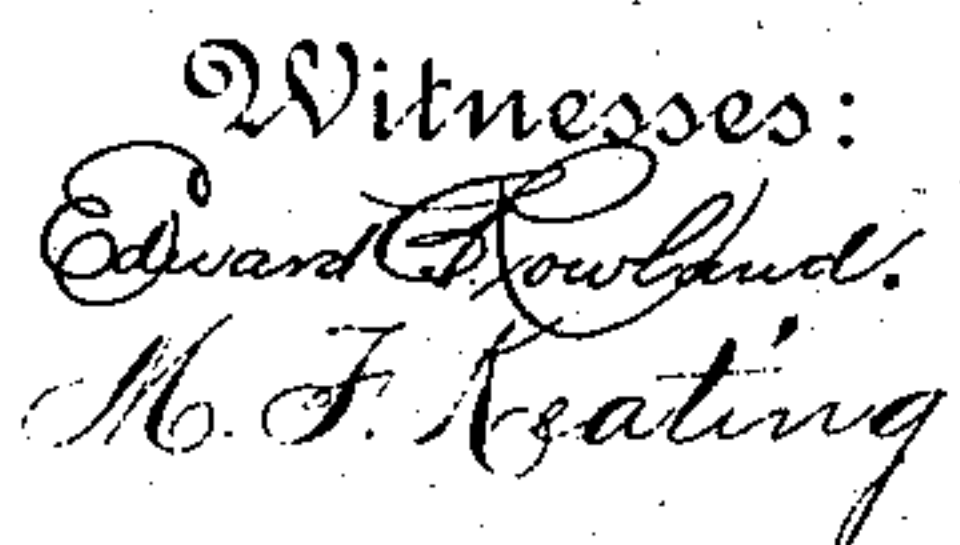 Witnesses:
Edward Rowland.
M. F. Keating